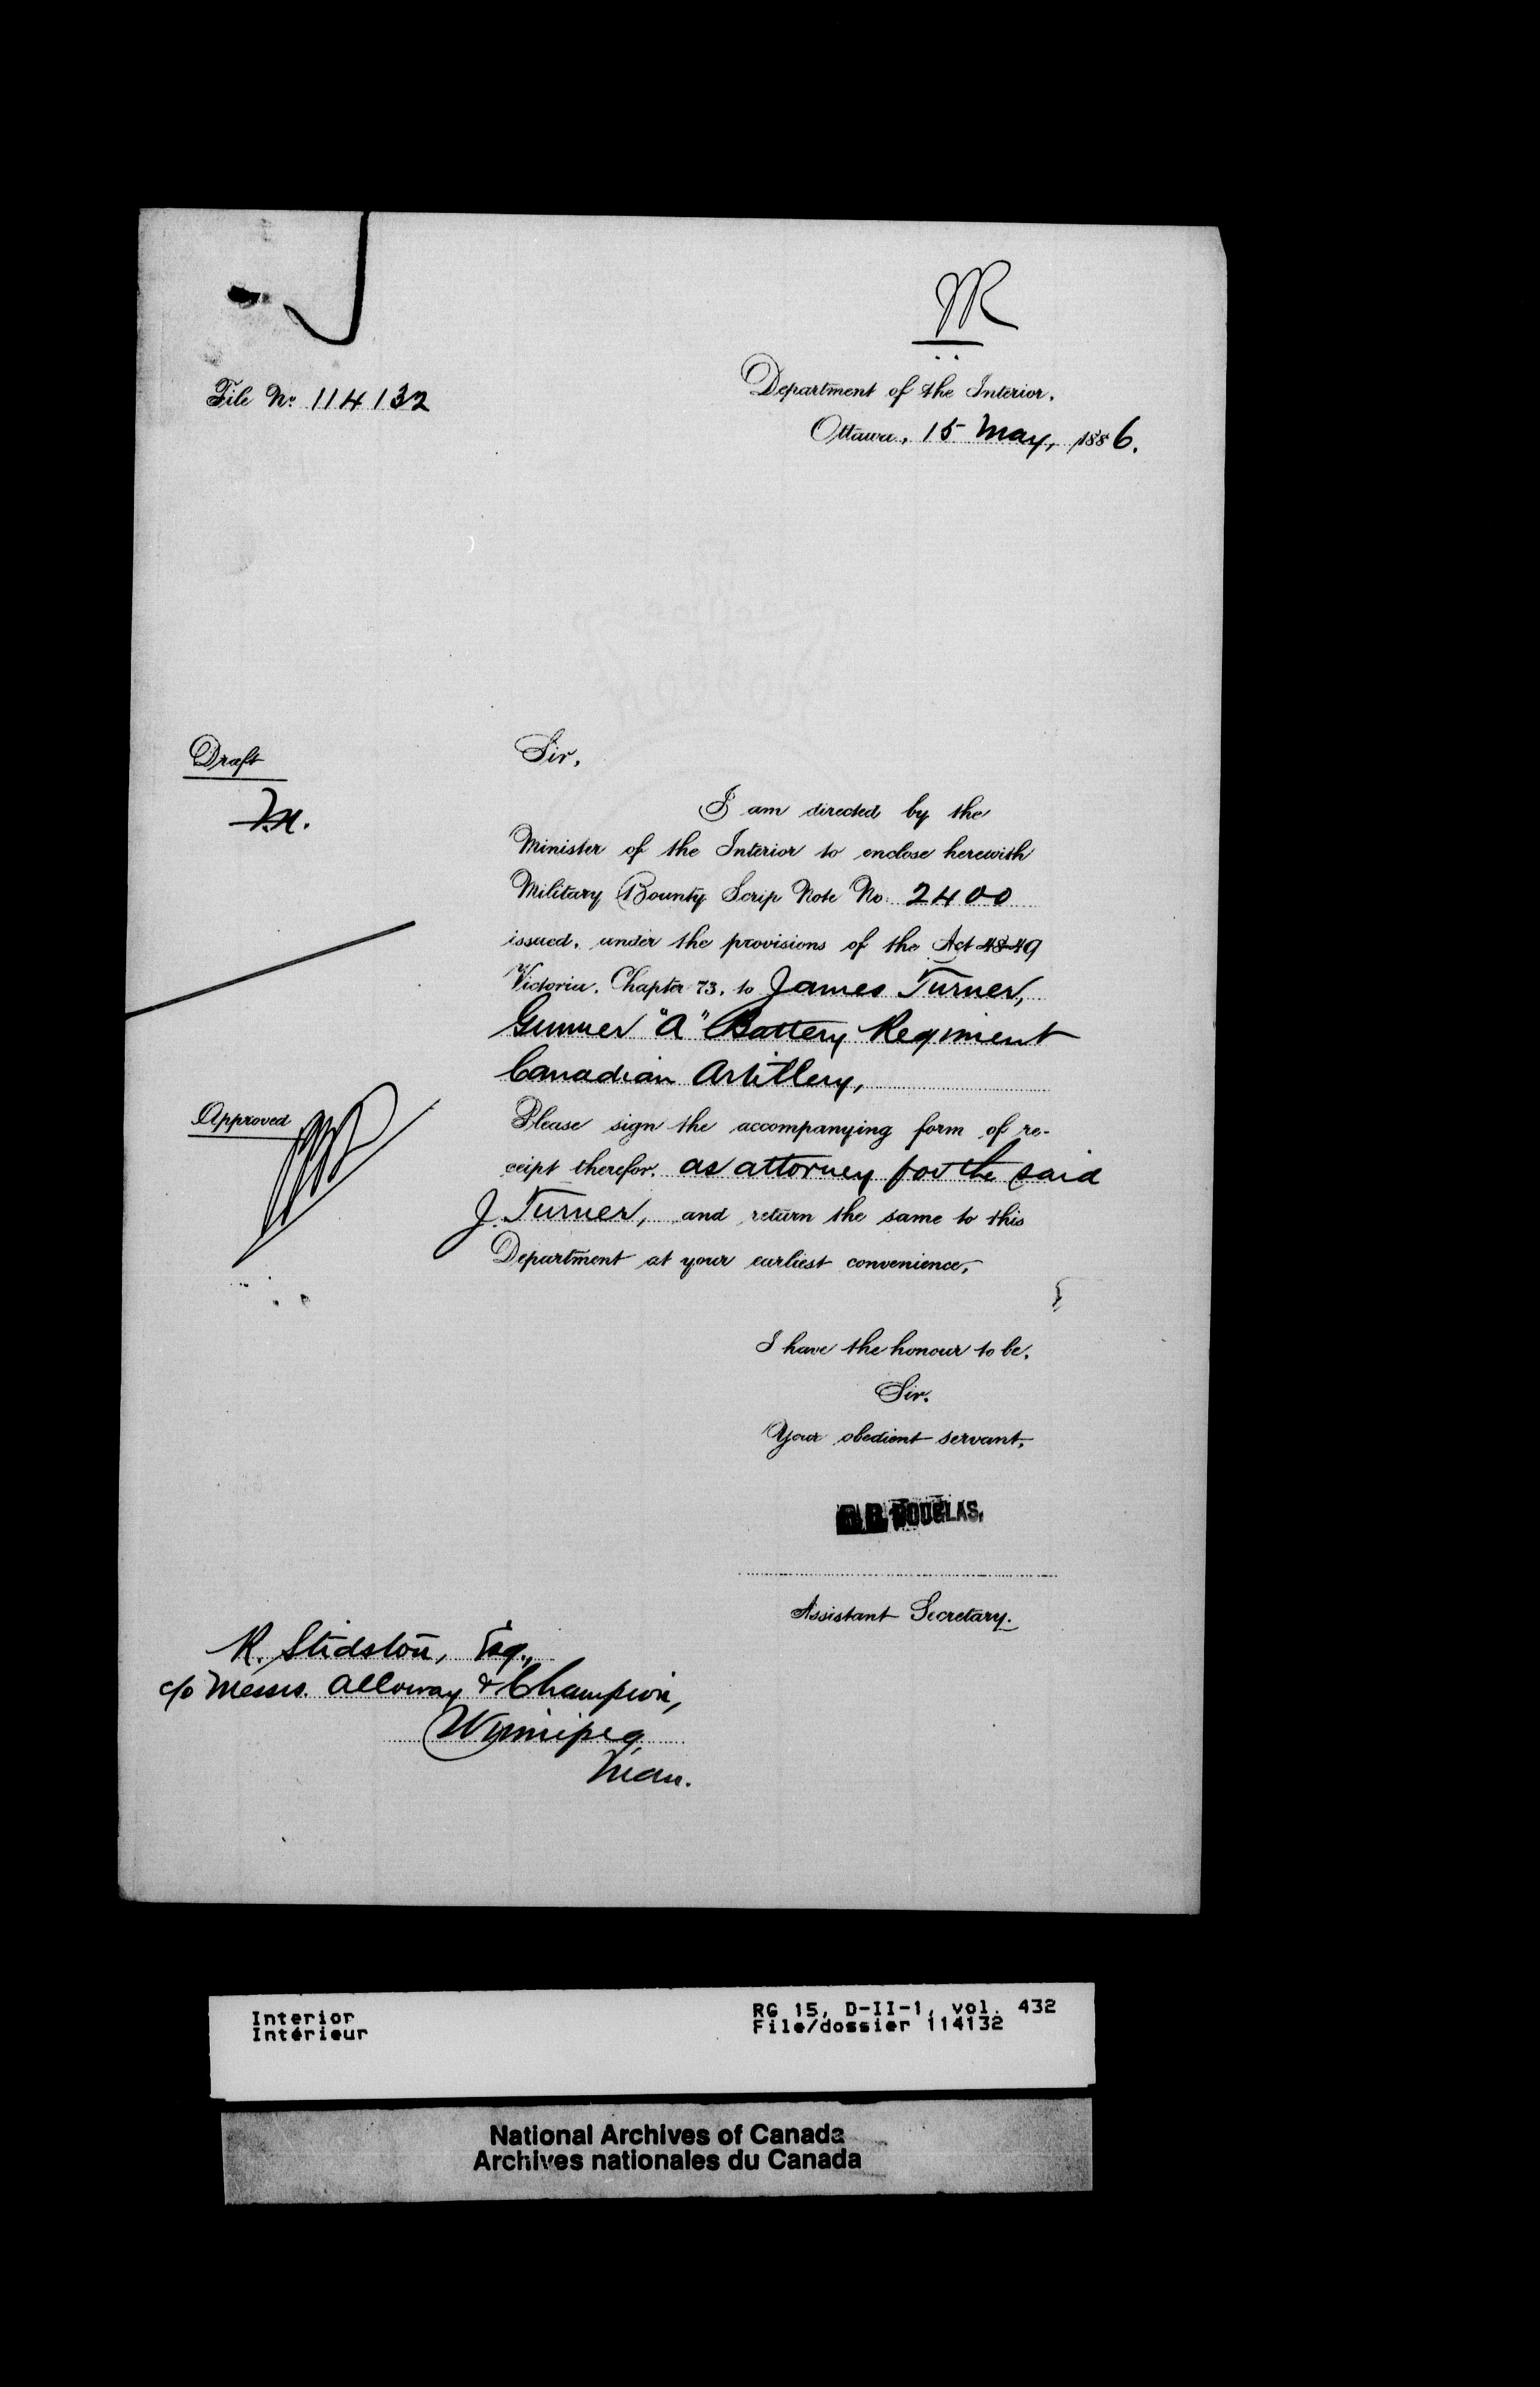 File No. 114132
Department of the Interior,
Ottawa, 15 May, 1886.
Draft
Sir,
I am directed by the
Minister of the Interior to enclose herewith
Military Bounty Scrip Note No. 2400
issued, under the provisions of the Act 48-49
Victoria, Chapter 73, to James Turner,
Gunner "A" Battery Regiment
Canadian Artillery,
Approved
Please sign the accompanying form of re-
ceipt therefor, as attorney for the said
J. Turner, and return the same to this
Department at your earliest convenience,
I have the honour to be,
Sir,
Your obedient servant,
DOUGLAS,
Assistant Secretary.
R. Stidston, Esq.,
c/o Messrs. Alloway & Champion,
Winnipeg
Man.
Interior
Intérieur
RG 15, D-II-1, vol. 432
File/dossier 114132
National Archives of Canada
Archives nationales du Canada